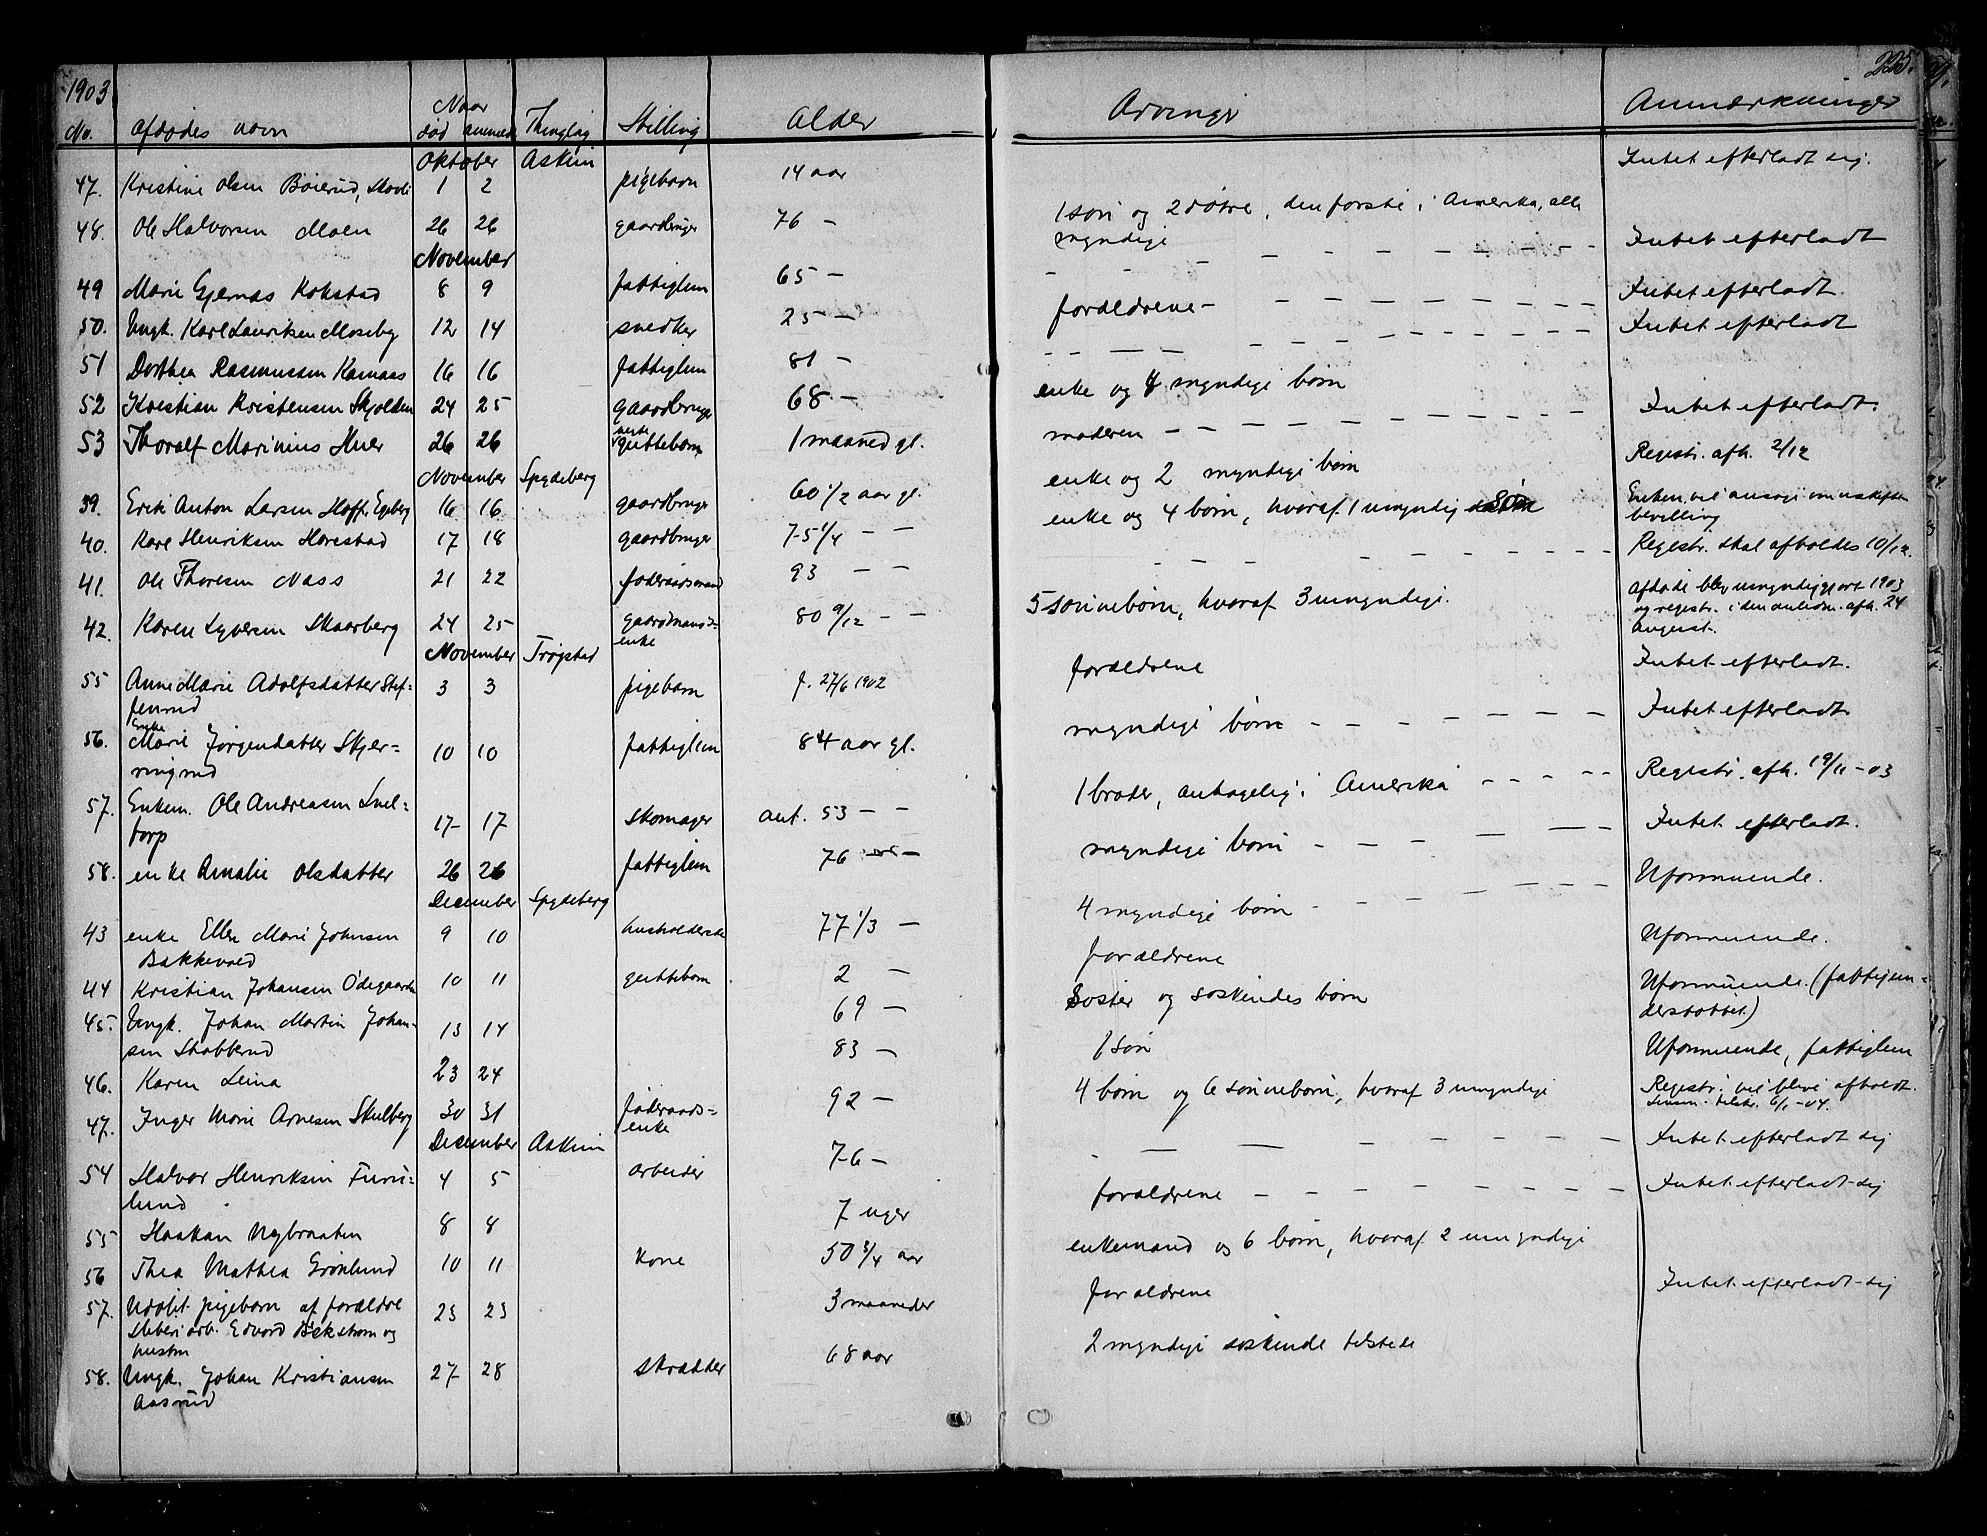 1903
225.
No. Afdødes navn Naar død anmeldt Thinglag Stilling Alder Arvinger Anmærkninger
Oktober Askim
47. Kristine Olsen Böierud, 1 2 pigebarn 14 aar Intet efterladt sig.
48. Ole Halvorsen Moen 26 26 gaardbruger 76 — 1 søn og 2 døtre, den første i Amerika, alle
myndige Intet efterladt
November
49 Marie Gjernæs Kokstad 8 9 fattiglem 65 — Intet efterladt.
50. Ungk. Karl Lauritsen Moseby 12 14 snedker 25 — forældrene — Intet efterladt
51 Dorthea Rasmussen Kamaas 16 16 fattiglem 81 —
52 Kristian Kristensen Skjolden 24 25 gaardbruger 68 — enke og 4 myndige børn Intet efterladt.
53 Thoralf Marinius Huer 26 26 uægte guttebarn 1 maaned gl. moderen — Registr. afh. 2/12
November Spydeberg
39. Erik Anton Larsen Hoff, Egeberg 16 16 gaardbruger 60 1/2 aar gl. enke og 2 myndige børn Enken vil ansøge om uskifte
bevilling
40. Kare Henriksen Horestad 17 18 gaardbruger 75 1/4 — — enke og 4 børn, hvoraf 1 umyndig søn Registr. skal afholdes 10/12.
41. Ole Thoresen Næss 21 22 føderaadsmand 93 — —
42. Karen Syversen Skaarberg 24 25 gaardmands=
enke 80 9/12 — — 5 sønnebørn, hvoraf 3 umyndige. Afdøde blev umyndiggjort 1903
og registr. i den anledn. afh. 24
August.
November Trøgstad
55 Anne Marie Adolfsdatter Stef=
fenrud 3 3 pigebarn f. 27/6 1902 forældrene Intet efterladt.
56. Enke
Marie Jörgendatter Skjer=
ningrud 10 10 fattiglem 84 aar gl. myndige børn — Intet efterladt
57. Enkem. Ole Andreasen
torp 17 17 skomager ant. 53 — — 1 broder, antagelig i Amerika — Registr. afh. 19/11 -03
58. enke Amalie Olsdatter 26 26 fattiglem 76 — myndige børn — Intet efterladt.
December Spydeberg
43 enke Ellen Marie Johnsen
Bakkevold 9 10 husholderske 77 1/3 — 4 myndige børn — Uformuende.
44 Kristian Johansen Ödegaarden 10 11 guttebarn 2 — forældrene Uformuende.
45. Ungk. Johan Martin Johan=
sen Skabberud 13 14 69 — Søster og søskendes børn Uformuende. (fattigun=
derstöttet)
46. Karen Leina 23 24 83 — 1 søn Uformuende, fattiglem
47. Inger Marie Arnesen Skulberg 30 31 føderaads=
enke 92 — 4 børn og 6 sønnebørn, hvoraf 3 umyndige Registr. vil blive afholdt.
6/1 -04.
December Askim
54 Halvor Henriksen Furu=
lund. 4 5 arbeider 76 — Intet efterladt sig
55 Haakan Nybraaten 8 8 7 uger forældrene — Intet efterladt sig
56 Thea Mathea Grönlund 10 11 kone 50 3/4 aar enkemand og 6 børn, hvoraf 2 umyndige
57. Udøbt pigebarn af forældre
sliberiarb. Edvard Bäkstrøm og
hustru 23 23 3 maaneder forældrene Intet efterladt sig
58. Ungk. Johan Kristiansen
Aasrud 27 28 skrædder 68 aar 2 myndige søskende tilstede